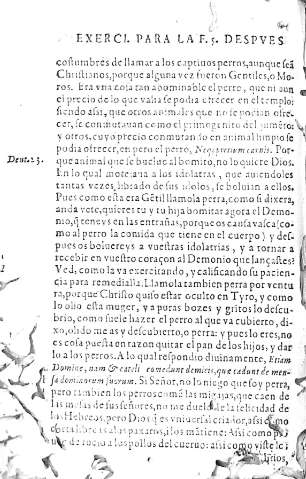 EXERCI. PARA LA F. 5. DESPVES
costumbres de llamar a los captiuos perros, aunque seā
Christianos, porque alguna vez fueron Gentiles, o Mo-
ros. Era vna cosa tan abominable el perro, que ni aun
el precio de lo que valia se podia ofrecer en el templo:
siendo assi, que otros animales que no se podian ofre-
cer, se conmutauan como el primogenito del jumēto:
y otros, cuyo precio conmutado en animal limpio se
podia ofrecer, en pero el perro, Neq; pretium canis. Por-
Deut. 23.
que animal que se buelue al bomito, no lo quiere Dios.
En lo qual motejaua a los idolatras, que auiendoles
tantas vezes, librado de sus idolos, se boluian a ellos.
Pues como esta era Gētil llamola perra, como si dixera,
anda vete, quieres tu y tu hija bomitar agora el Demo-
nio, q̄ teneys en las entrañas, porque os cansa vasca (co-
mo al perro la comida que tiene en el cuerpo) y des-
pues os boluereys a vuestras idolatrias, y a tornar a
recebir en vuestro coraçon al Demonio que lançastes?
Ved, como la va exercitando, y calificando su pacien-
cia para remedialla. Llamola tambien perra por ventu
ra, porque Christo quiso estar oculto en Tyro, y como
lo olio esta muger, y a puras bozes y gritos lo descu-
brio, como suele hazer el perro al que va cubierto, di-
xo, olido me as y descubierto, o perra: y pues lo eres, no
es cosa puesta en razon quitar el pan de los hijos, y dar
lo a los perros. A lo qual respondio diuinamente, Etiam
Domine, nam & catelli comedunt de micis, que cadunt de men-
sa dominorum suorum. Si Señor, no lo niego que soy perra,
pero tambien los perros comē las migajas, que caen de
las mesas de sus señores, no me duele la felicidad de
los Hebreos, pero Dios q̄ es vniuersal criador, assi como
a los paxaros, los mātiene: Assi como
de rocio a los pollos del cueruo: assi como viste
lirios,